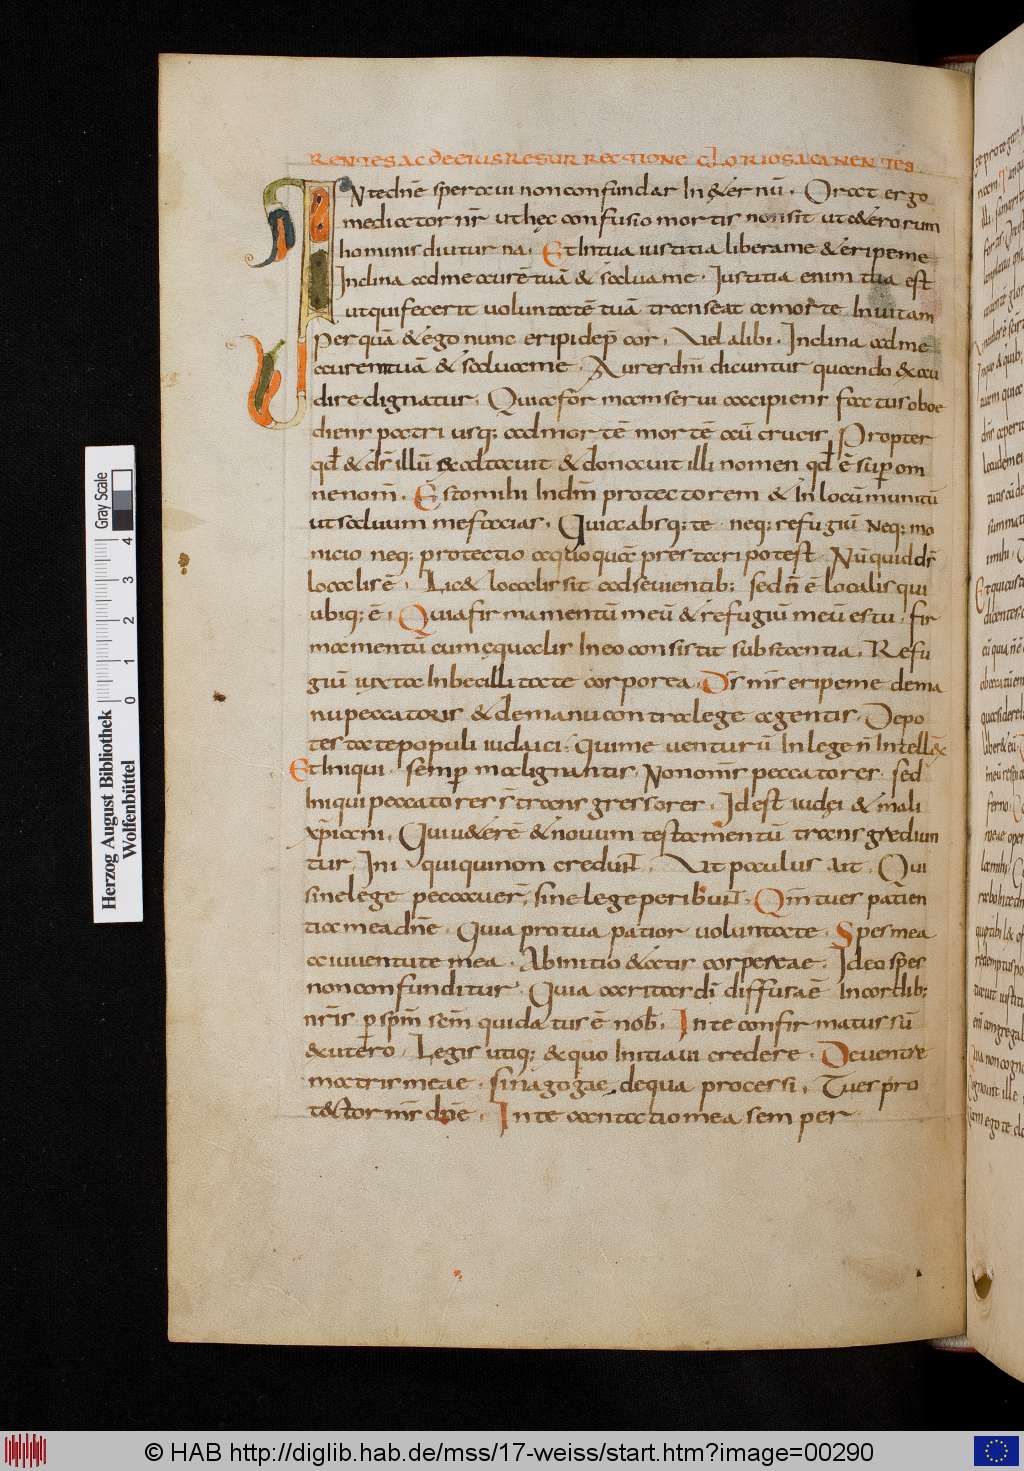 RENTES AC DE EIUS RESURRECTIONE GLORIOSA CANENTES
IN te dn̄e speraui non confundar In &ernū. Orat ergo
mediator nr̄ ut hęc confusio mortis non sit ut &erorum
hominis diuturna. Et In tua iustitia libera me & eripe me
Inclina ad me aurē tuā & salua me. Iustitia enim tua est
ut qui fecerit uoluntatē tuā transeat a morte In uitam
per quā & ego nunc eripi dep̄cor. Vel alibi. Inclina ad me
aurem tuā & salua me. Aures dn̄i dicuntur quando & au
dire dignatur. Quia formam serui accipiens factus oboe
diens patri usq; ad mortē mortē aū crucis. Propter
qd̄ & dr̄ illū exaltauit & donauit illi nomen qd̄ ē sup om
ne nom̄. Esto mihi In dm̄ protectorem & In locū munitū
ut saluum me facias. Quia absq; te neq; refugiū neq; mu
nicio neq; protectio a quoquā prestari potest. Nūquid dr̄
localis ē. Lic& localis sit ad seuientib; sed n̄ ē localis qui
ubiq; ē. Quia firmamentū meū & refugiū meū es tu. fir
mamentū cum ęqualis In eo consistit substantia. Refu
giū iuxta Inbecillitate corporea. Ds̄ ms̄ eripe me de ma
nu peccatoris & de manu contra lege agentis. De po
testate populi iudaici. qui me venturū In lege n̄ Intell&
Et Iniqui. semp malignantis. Non om̄s peccatores sed
Iniqui peccatores s̄ transgressores. Id est iudei & mali
xp̄iani. Qui u&erē & nouum testamentū transgrediun
tur. Ini qui qui non credunt. Vt paulus ait. Qui
sine lege peccauer̄, sine lege peribunt. Qm̄ tu es patien
tia mea dn̄e. Quia pro tua patior uoluntate. Spes mea
a iuuentute mea. Ab initio &atis corpereae. Ideo spes
non confunditur. Quia caritas dī diffusa ē In cordib;
nr̄is p spm̄ sem̄ qui datus ē nob̄. In te confirmatus sū
ex utero. Legis utiq; ex quo Initiaui credere. De uentre
matris meae. sinagogae, de qua processi. Tu es pro
tector ms̄ dn̄e. In te cantatio mea semper
Herzog August Bibliothek
Wolfenbüttel
Gray Scale
0 1 2 3 4
© HAB http://diglib.hab.de/mss/17-weiss/start.htm?image=00290